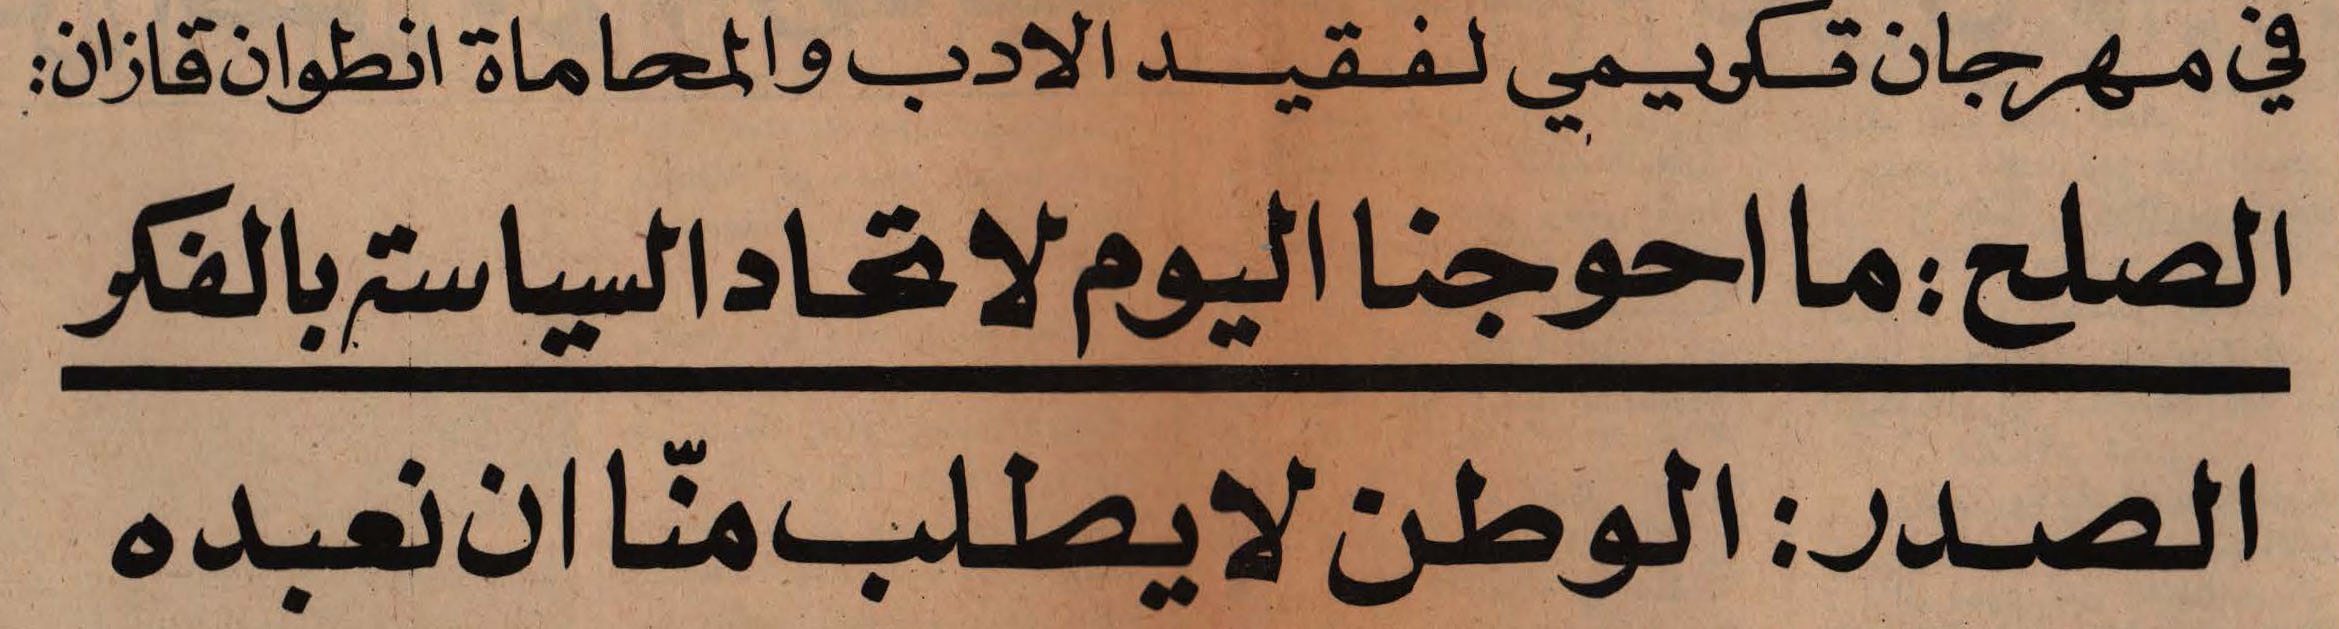 في مهرجان تكريمي لفقيد الادب والمحاماة انطوان قازان:
الصلح: ما احوجنا اليوم لاتحاد السياسة بالفكر
الصدر: الوطن لا يطلب منّا ان نعبده